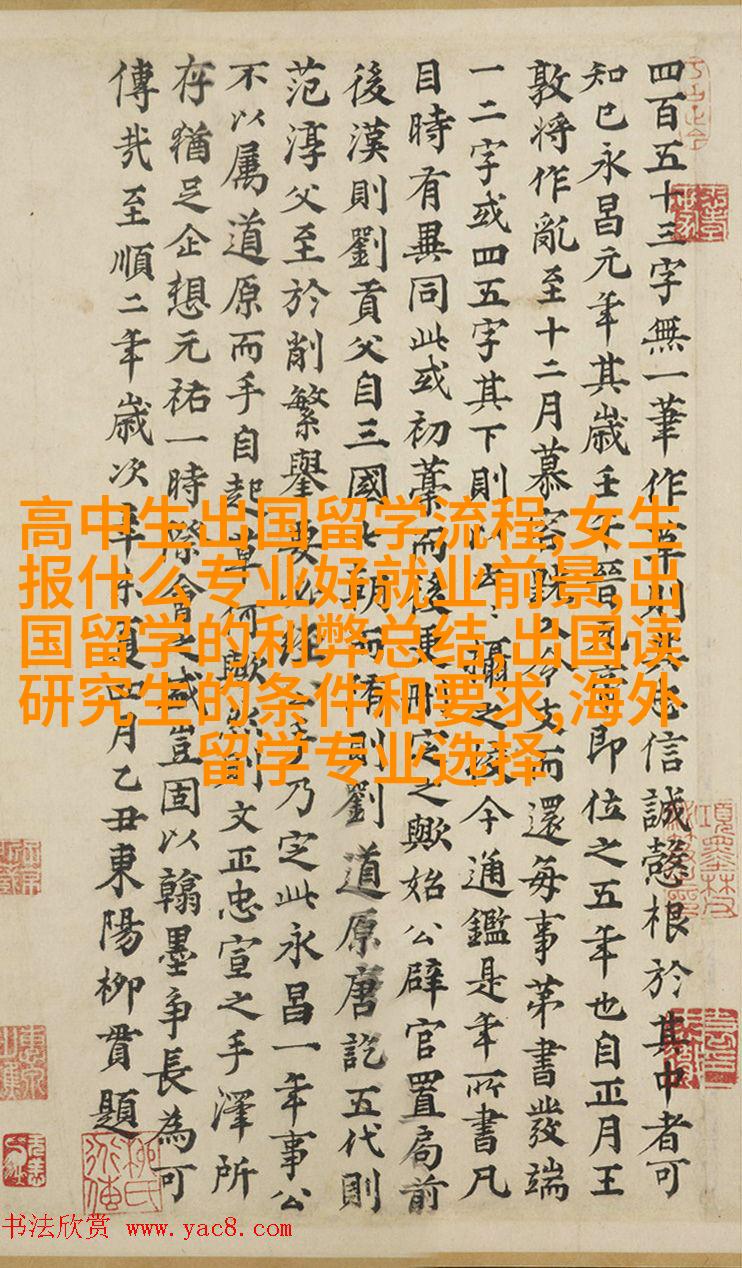 四百五十三字無一筆作草則其忠信誠慤根於其中者可
知已永昌元年其歲壬午晉元帝即位之五年也自正月王
敦將作亂至十二月慕容皝入令支而還每事第書發端
一二字或四五字其下則以攝之校今通鑑是年所書凡
目時有異同此或初藁而後更刪定之歟始公辟官置局前
後漢則劉貢父自三國七朝而隋則劉道原唐訖五代則
范淳父至於削繁舉要必經公手乃定此永昌一年事公
不以屬道原而手自起草何歟然則文正忠宣之手澤所
存猶足企想元祐一時際會之盛豈固以翰墨爭長為可
傳哉至順二年歲次辛未夏四月乙丑東陽柳貫題
高中生出国留学流程,女生
报什么专业好就业前景,出
国留学的利弊总结,出国读
研究生的条件和要求,海外
留学专业选择
书法欣赏 www.yac8.com